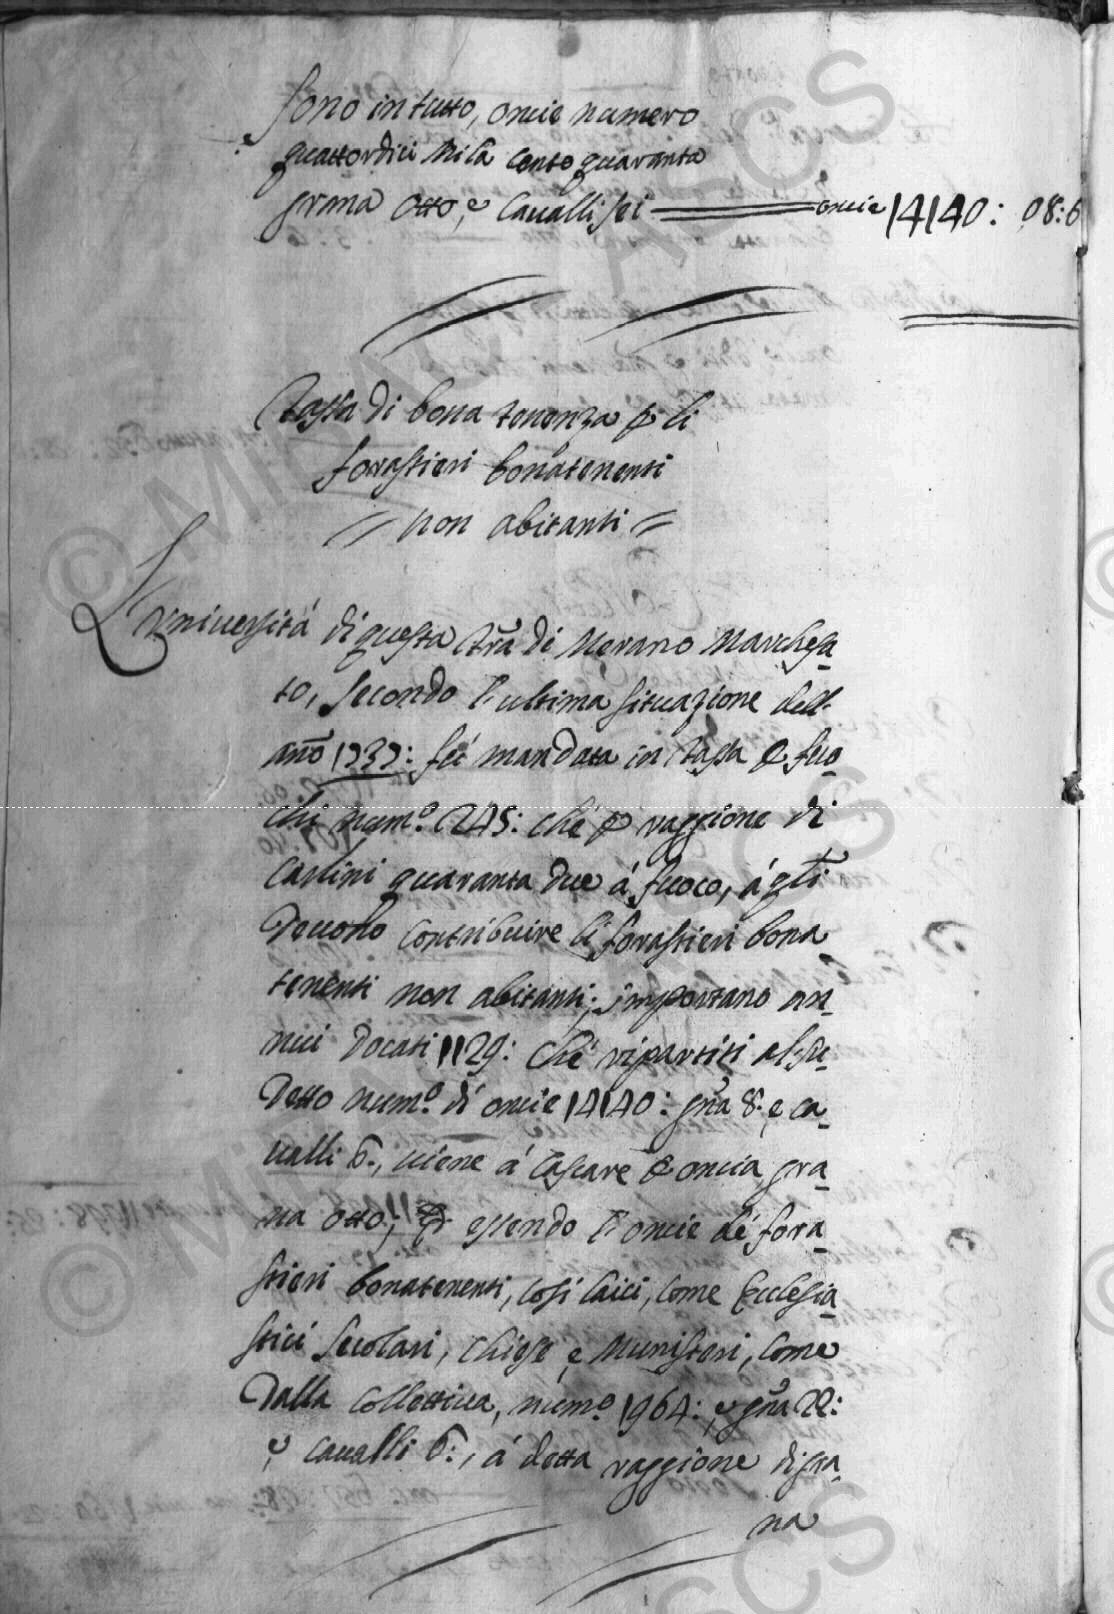 sono in tutto, oncie numero
quattordici Mila cento quaranta
grana Otto, e Cavalli sei oncie 14140: 08:6
Tassa di bona tenenza p li
forastieri bonatenenti
non abitanti
L'università di questa Trã di Marano Marchesa
to, secondo l'ultima situazione dell'
anno 1737: fu mandata in Tassa p fuo
chi num.º 245: che p raggione di
Carlini quaranta due á fuoco, á qli
devono contribuire li forastieri bona
tenenti non abitanti, importano an
nui Docati 1129: che ripartiti al su
detto num.º di oncie 14140: gña 8: e ca
valli 6:, viene á cascare p oncia gra
na otto; Et essendo l'oncie de' fora
stieri bonatenenti, così laici, come Ecclesia
stici secolari, chiese e Munisteri, come
dalla collettiva, num.º 1964: e gña 22:
e cavalli 6:, á detta raggione di gra
na
© MiC ASCS